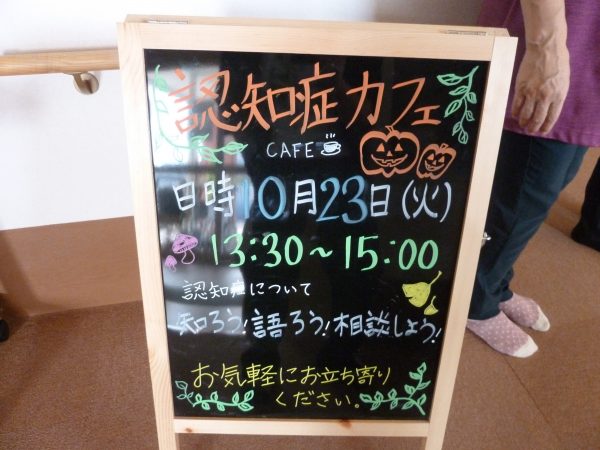 認知症カフェ
CAFE
日時10月23日(火)
13:30～15:00
認知症について
知ろう!語ろう!相談しよう!
お気軽にお立ち寄り
ください。